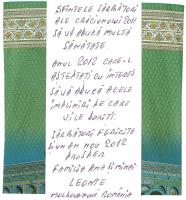 SFINTELE SĂRBĂTORI
ALE CRĂCIUNULUI 2011
SĂ VĂ ADUCĂ MULTĂ
SĂNĂTATE.
ANUL 2012 CARE-L
AȘTEPTAȚI CU INTERES
SĂ VĂ ADUCĂ ACELE
ÎMPLINIRI DE CARE
SÎLE DORIȚI.
SĂRBĂTORI FERICITE
ȘI UN AN NOU 2012
PROSPER
FAMILIA ANA ȘI MIHAI
LEONTE
MOLDOVA NOUĂ ROMÂNIA